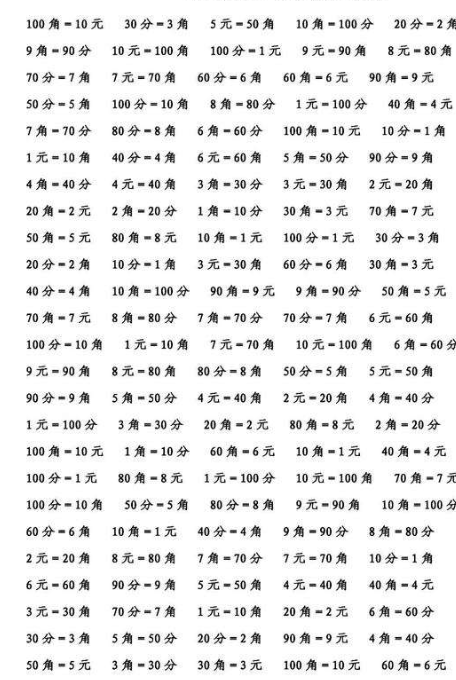 100 角 = 10 元 30 分 = 3 角 5 元 = 50 角 10 角 = 100 分 20 分 = 2 角
9 角 = 90 分 10 元 = 100 角 100 分 = 1 元 9 元 = 90 角 8 元 = 80 角
70 分 = 7 角 7 元 = 70 角 60 分 = 6 角 60 角 = 6 元 90 角 = 9 元
50 分 = 5 角 100 分 = 10 角 8 角 = 80 分 1 元 = 100 分 40 角 = 4 元
7 角 = 70 分 80 分 = 8 角 6 角 = 60 分 100 角 = 10 元 10 分 = 1 角
1 元 = 10 角 40 分 = 4 角 6 元 = 60 角 5 角 = 50 分 90 分 = 9 角
4 角 = 40 分 4 元 = 40 角 3 角 = 30 分 3 元 = 30 角 2 元 = 20 角
20 角 = 2 元 2 角 = 20 分 1 角 = 10 分 30 角 = 3 元 70 角 = 7 元
50 角 = 5 元 80 角 = 8 元 10 角 = 1 元 100 分 = 1 元 30 分 = 3 角
20 分 = 2 角 10 分 = 1 角 3 元 = 30 角 60 分 = 6 角 30 角 = 3 元
40 分 = 4 角 10 角 = 100 分 90 角 = 9 元 9 角 = 90 分 50 角 = 5 元
70 角 = 7 元 8 角 = 80 分 7 角 = 70 分 70 分 = 7 角 6 元 = 60 角
100 分 = 10 角 1 元 = 10 角 7 元 = 70 角 10 元 = 100 角 6 角 = 60 分
9 元 = 90 角 8 元 = 80 角 80 分 = 8 角 50 分 = 5 角 5 元 = 50 角
90 分 = 9 角 5 角 = 50 分 4 元 = 40 角 2 元 = 20 角 4 角 = 40 分
1 元 = 100 分 3 角 = 30 分 20 角 = 2 元 80 角 = 8 元 2 角 = 20 分
100 角 = 10 元 1 角 = 10 分 60 角 = 6 元 10 角 = 1 元 40 角 = 4 元
100 分 = 1 元 80 角 = 8 元 1 元 = 100 分 10 元 = 100 角 70 角 = 7 元
100 分 = 10 角 50 分 = 5 角 80 分 = 8 角 9 元 = 90 角 10 角 = 100 分
60 分 = 6 角 10 角 = 1 元 40 分 = 4 角 9 角 = 90 分 8 角 = 80 分
2 元 = 20 角 8 元 = 80 角 7 角 = 70 分 7 元 = 70 角 10 分 = 1 角
6 元 = 60 角 90 分 = 9 角 5 元 = 50 角 4 元 = 40 角 40 角 = 4 元
3 元 = 30 角 70 分 = 7 角 1 元 = 10 角 20 角 = 2 元 6 角 = 60 分
30 分 = 3 角 5 角 = 50 分 20 分 = 2 角 90 角 = 9 元 4 角 = 40 分
50 角 = 5 元 3 角 = 30 分 30 角 = 3 元 100 角 = 10 元 60 角 = 6 元